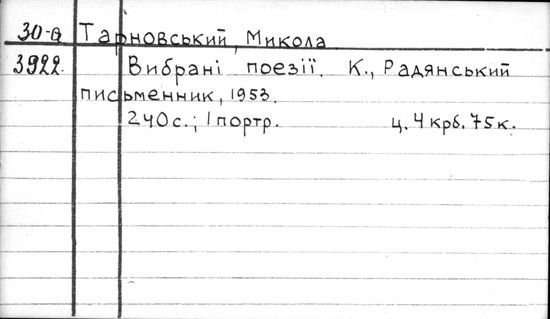 30-а Тарновський, Микола
3922. Вибрані поезії. К., Радянський
письменник, 1953.
240с.; 1 портр. ц. 4 крб. 75к.